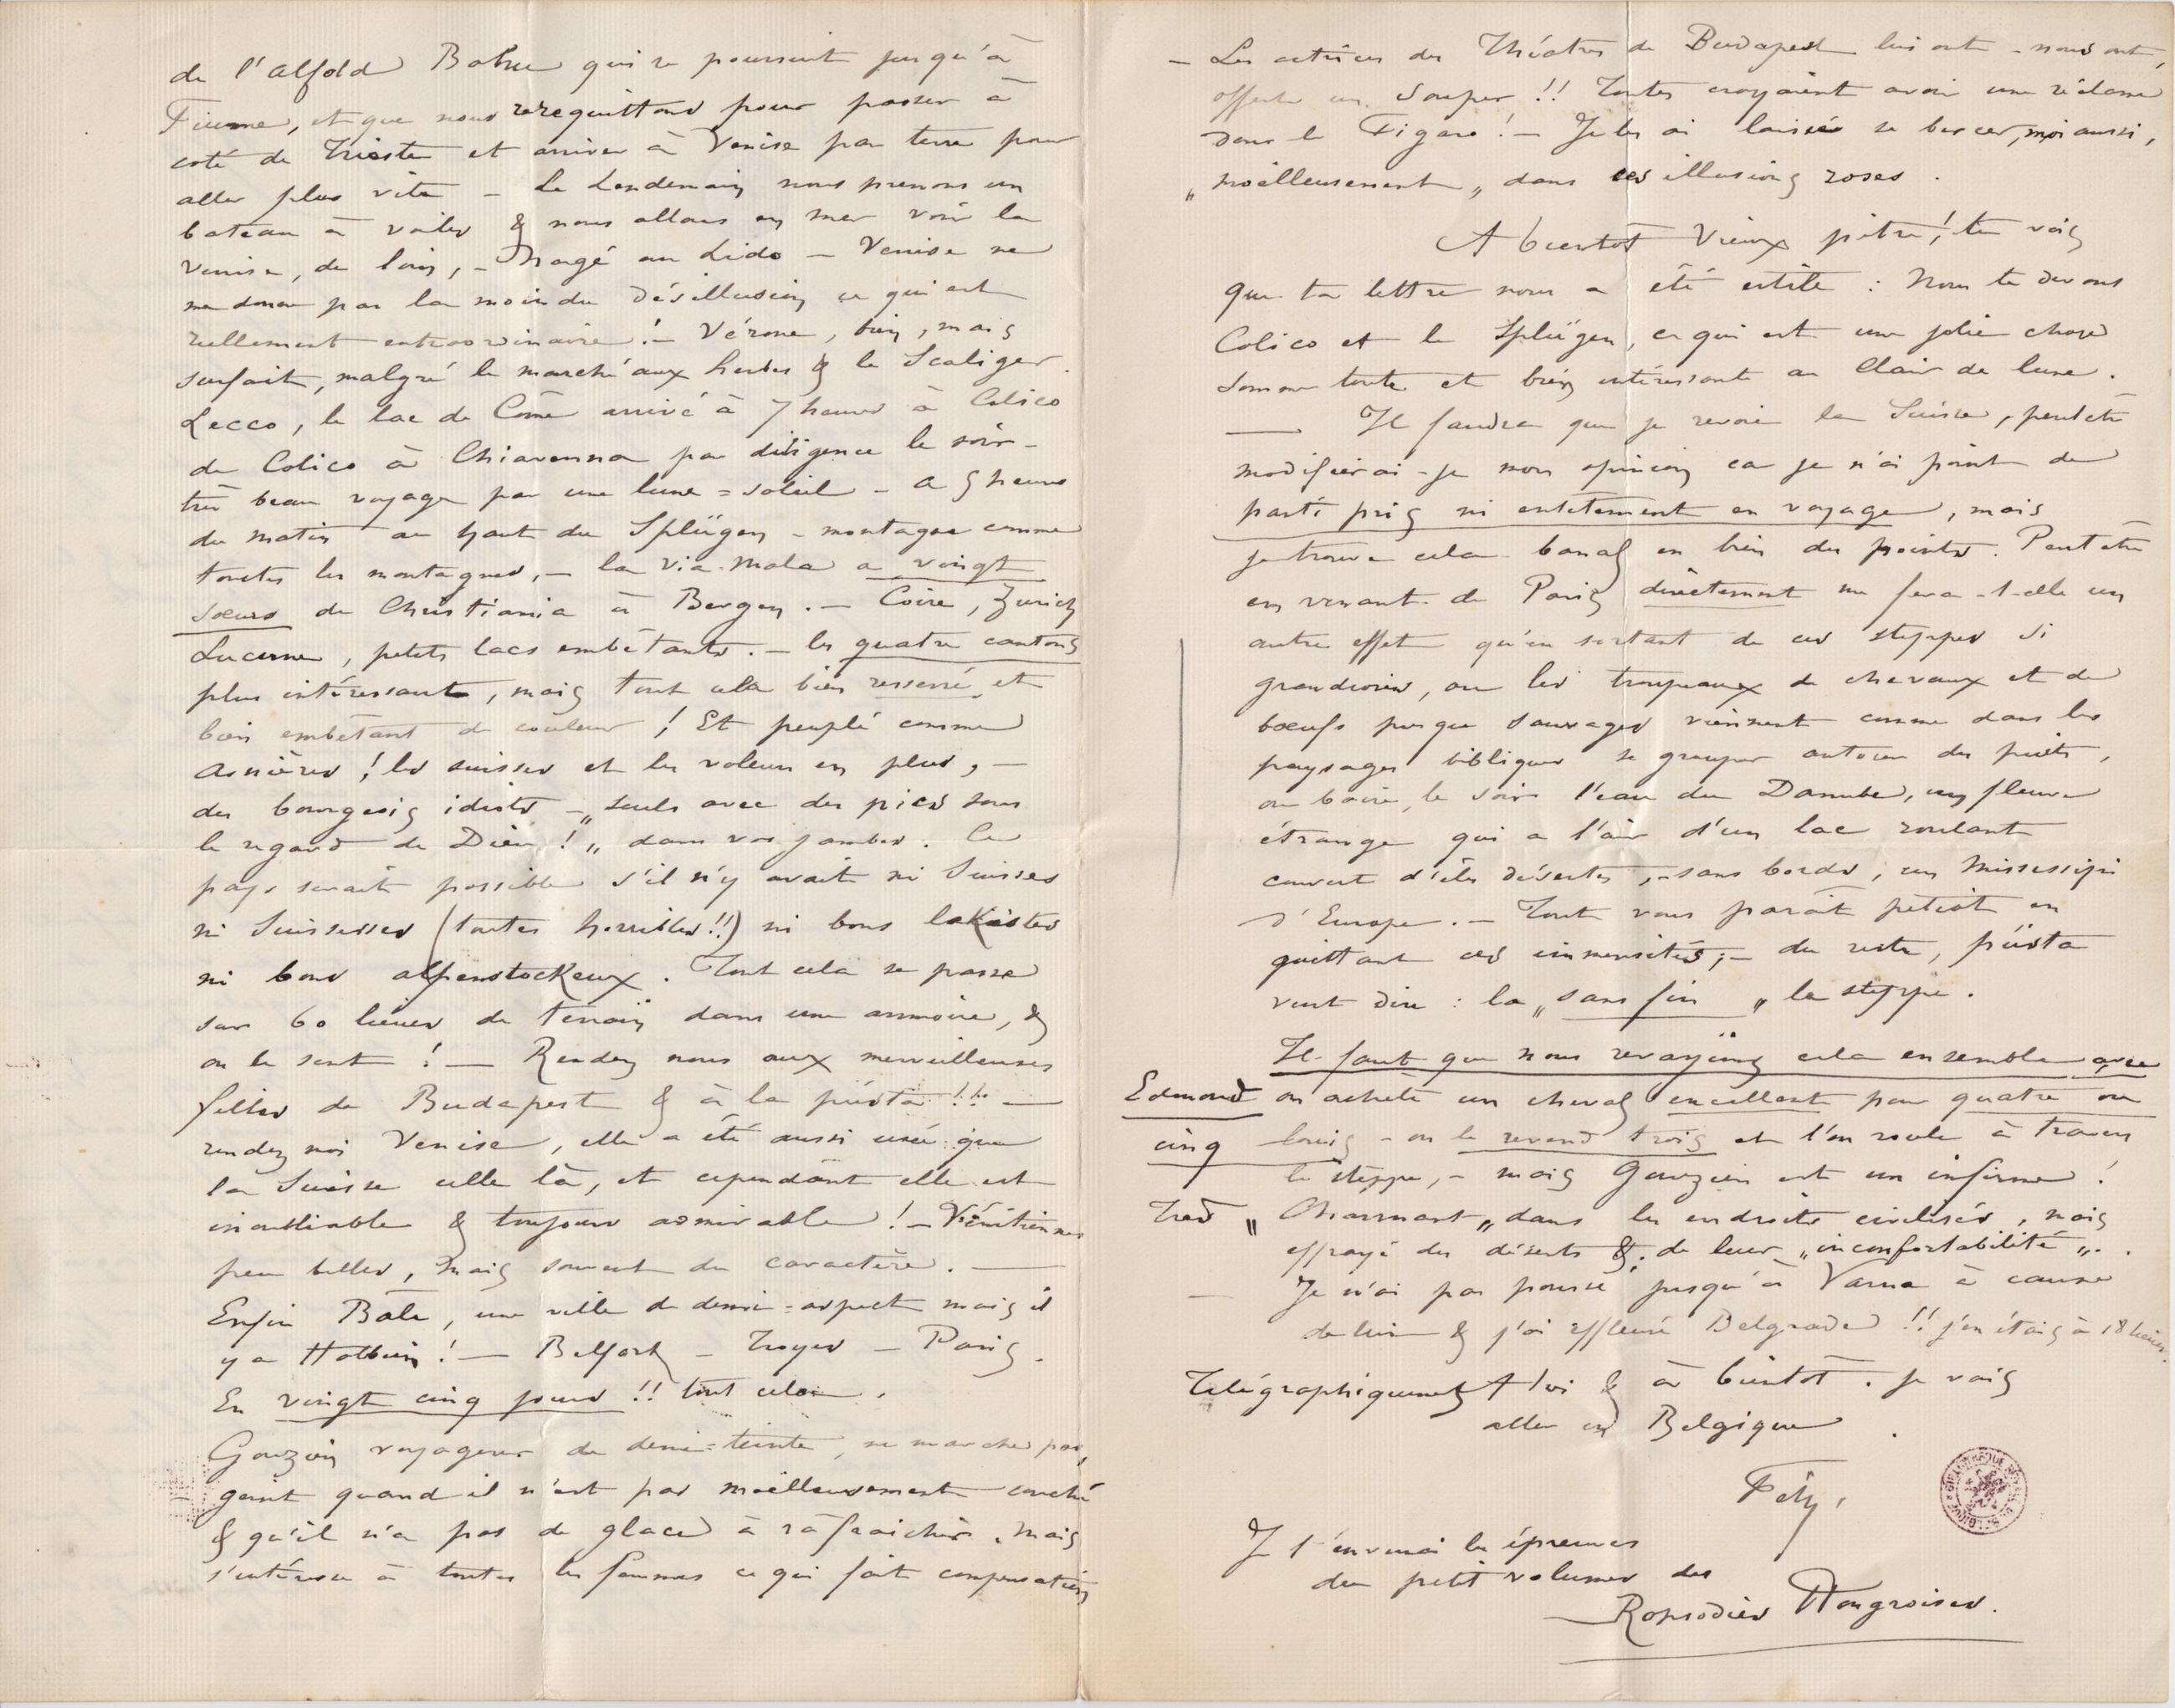 de l'Alfold Bohu qui se poursuit jusqu'à
Fiume, et que nous requittons pour passer à
coté de Trieste et arriver à Venise par terre pour
aller plus vite – Le Lendemain nous prenons un
bateau à voiles & nous allons en mer voir la
Venise, de loin, – Nagé au Lido – Venise ne
me donne pas la moindre désillusion ce qui est
réellement extraordinaire ! – Vérone, bien, mais
surfait, malgré le marché aux herbes & le Scaliger.
Lecco, le lac de Côme arrivé à 7 heures à Colico
de Colico à Chiavenna par diligence le soir –
très beau voyage par une lune=soleil – a 5 heures
du matin au haut du Splügen – montagne comme
toutes les montagnes, – la Via-Mala a vingt
soeurs de Christiania à Bergen. – Coire, Zurich
Lucerne, petits lacs embêtants. – les quatre cantons
plus intéressants, mais tout cela bien resserré et
bien embêtant de couleur ! Et peuplé comme
Asnières ! les suisses et les voleurs en plus, –
des bourgeois idiots – „seuls avec des pics sous
le regard de Dieu ! „ dans vos jambes. Ce
pays serait possible s'il n'y avait ni Suisses
ni Suissesses (toutes horribles !!) ni bons laKistes
ni bons alpenstocKeux. Tout cela se passe
sur 60 lieues de terrain dans une armoire, &
on le sent ! — Rendez nous aux merveilleuses
filles de Budapest & à la pusta !! —
rendez moi Venise, elle a été aussi usée que
la Suisse celle là, et cependant elle est
inoubliable & toujours admirable ! – Vénitiennes
peu belles, mais souvent du caractère. —
Enfin Bâle, une ville de demi=aspect mais il
y a Holbein ! — Belfort – Troyes – Paris.
En vingt cinq jours !! tout cela.
Gouzien voyageur de demi=teinte, ne marche pas,
– geint quand il n'est pas moëlleusement couché
& qu'il n'a pas de glace à rafraichir. Mais
s'intéresse à toutes les femmes ce qui fait compensation
– Les actrices des Théatres de Budapest lui ont – nous ont,
offert un souper !! Toutes croyaient avoir une réclame
dans le Figaro ! – Je les ai laissées se bercer, moi aussi,
„moëlleusement„ dans ces illusions roses.
A bientot Vieux pitre ! tu vois
que ta lettre nous a été utile : Nous te devons
Colico et le Splügen, ce qui est une jolie chose
somme toute et bien intéressante au Clair de lune.
— Il faudra que je revoie la Suisse, peut être
modifierai-je mon opinion car je n'ai point de
parti pris ni entêtement en voyage, mais
je trouve cela banal en bien des points. Peut être
en venant de Paris directement me fera-t-elle un
autre effet qu'en sortant de ces steppes si
grandioses, ou les troupeaux de chevaux et de
boeufs presque sauvages viennent comme dans les
paysages bibliques se grouper autour des puits,
ou boire, le soir l'eau du Danube, un fleuve
étrange qui a l'air d'un lac roulant
couvert d'îles désertes, – sans bords, un Mississipi
d'Europe. – Tout vous paraît petiot en
quittant ces immensités ; – du reste, pusta
veut dire : la „sans fin„ la steppe.
Il faut que nous revoyions cela ensemble avec
Edmond on achète un cheval excellent pour quatre ou
cinq louis – on le revend trois et l'on roule à travers
la steppe, – mais Gouzien est un infirme !
Très „Charmant„ dans les endroits civilisés, mais
effrayé des déserts & de leur „inconfortabilité„.
— Je n'ai pas poussé jusqu'à Varna à cause
de lui & j'ai effleuré Belgrade !! j'en étais à 18 lieues.
Télégraphiquement A toi & à bientôt. je vais
aller en Belgique.
Fély,
Je t'envoie les épreuves
du petit volume des
Rapsodies Hongroises.